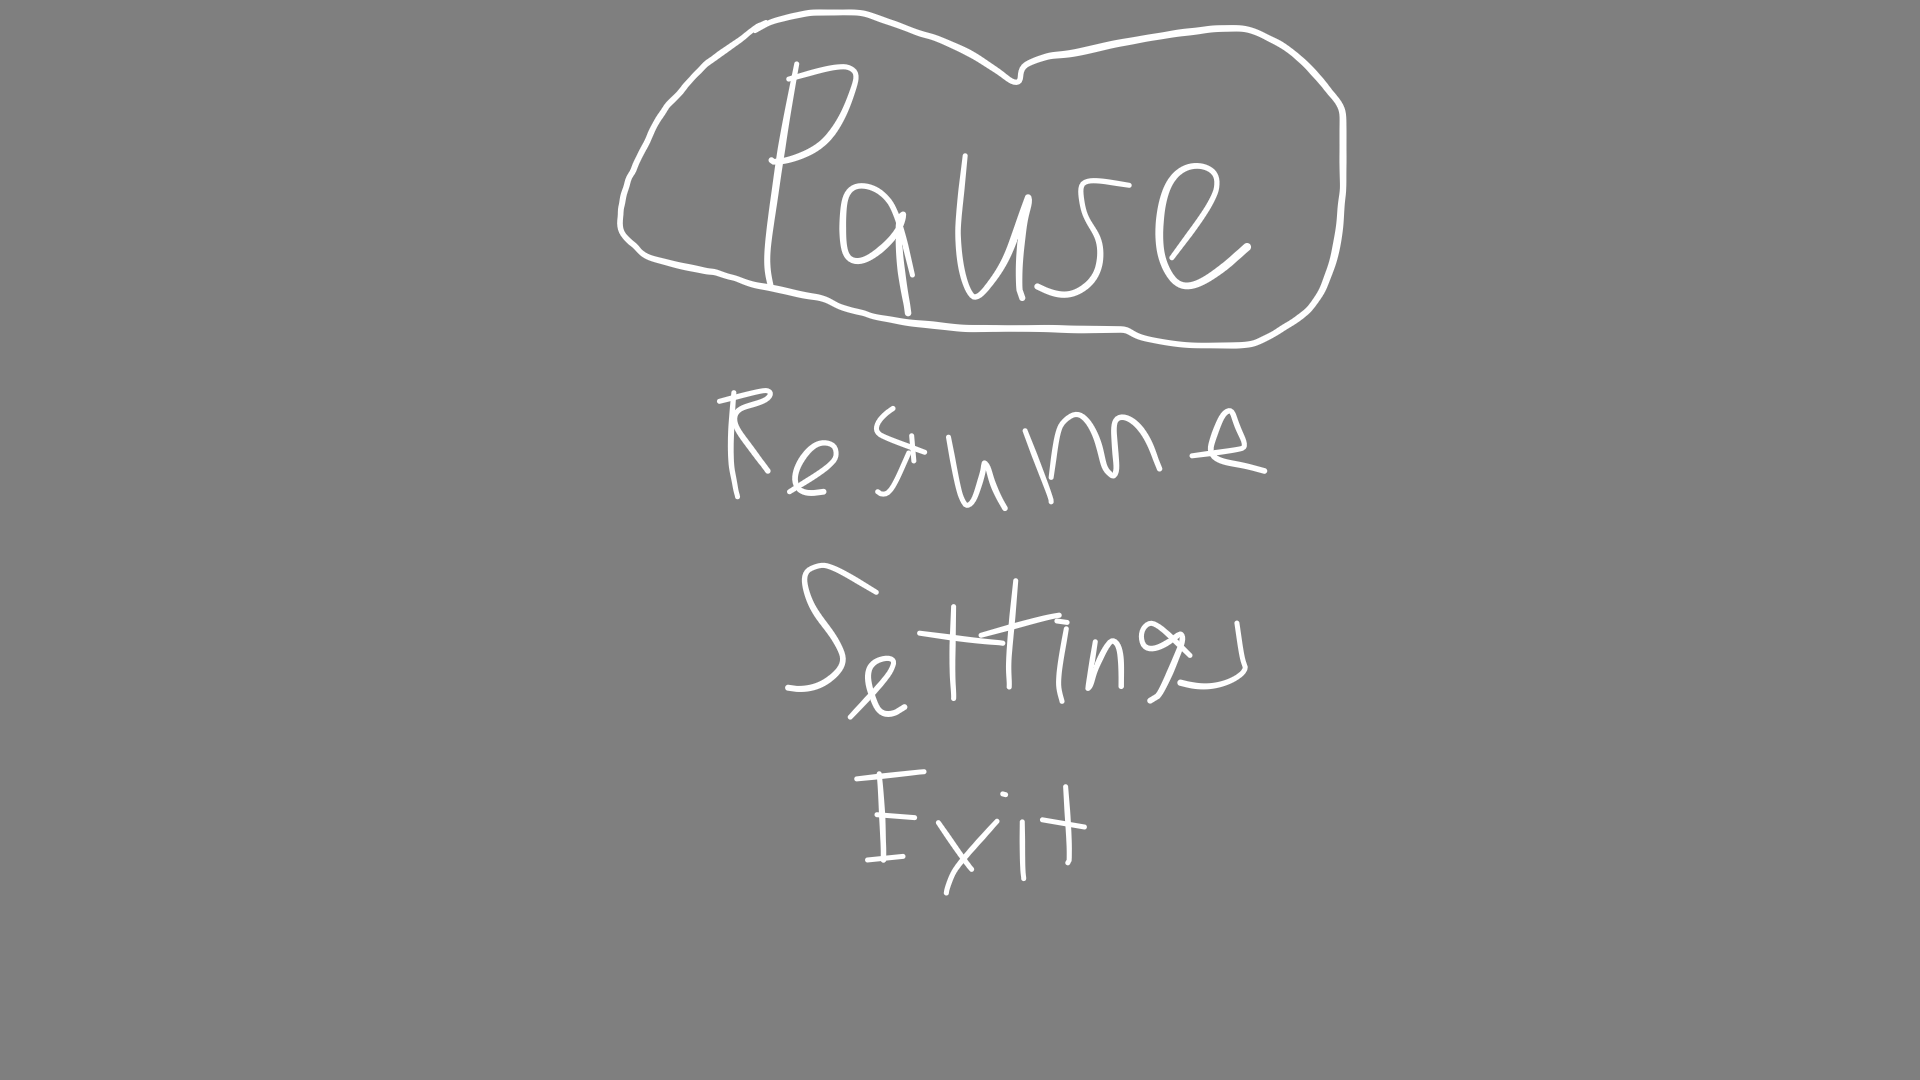 Pause
Resume
Settings
Exit